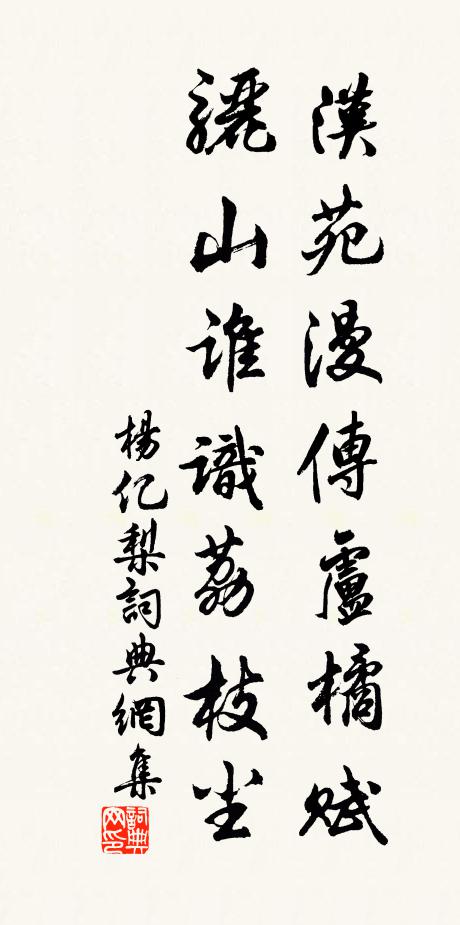 漢苑漫傳盧橘賦
驪山誰識荔枝尘
楊亿梨詞典網集
詞典
网印